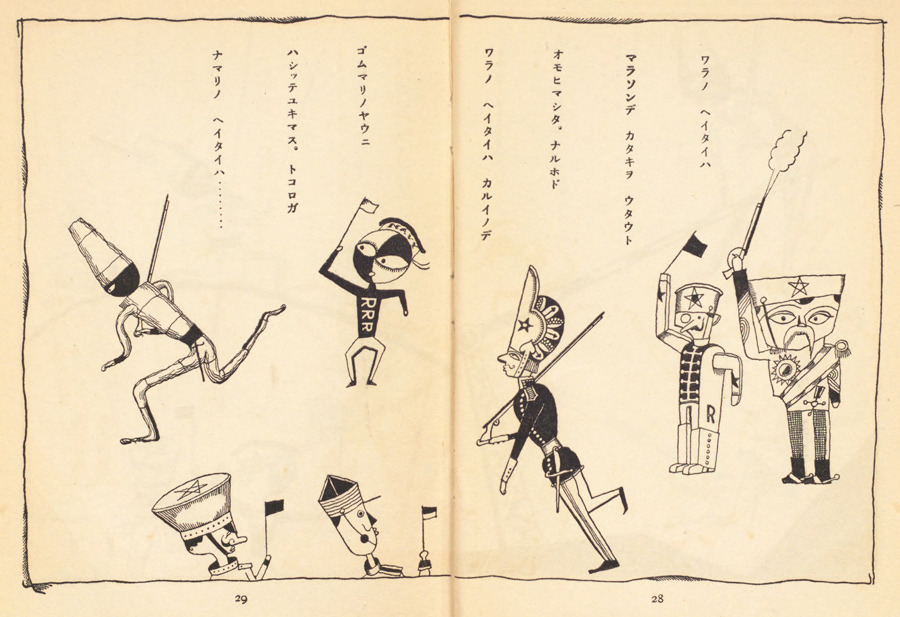 ワラノ ヘイタイハ
マラソンデ カタキヲ ウタウト
オモヒマシタ。ナルホド
ワラノ ヘイタイハ カルイノデ
ゴムマリノヤウニ
ハシッテユキマス。トコロガ
ナマリノ ヘイタイハ........
NAVY
RRR
R
28
29